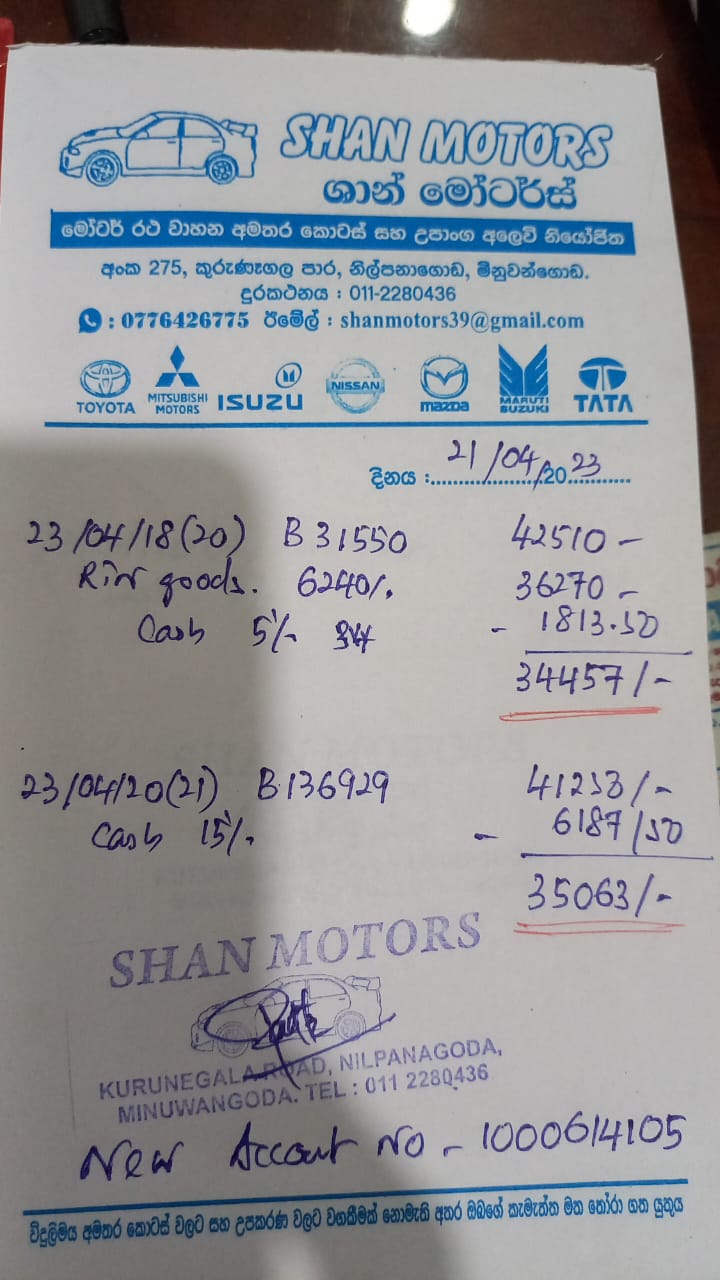 SHAN MOTORS
ශාන් මෝටර්ස්
මෝටර් රථ වාහන අමතර කොටස් සහ උපාංග අලෙවි නියෝජිත
අංක 275, කුරුණෑගල පාර, නිල්පනාගොඩ, මිනුවන්ගොඩ.
දුරකථනය : 011-2280436
: 0776426775 ඊමේල් : shanmotors39@gmail.com
TOYOTA MITSUBISHI MOTORS ISUZU NISSAN mazda MARUTI SUZUKI TATA
දිනය : 21/04/2023
23/04/18(20) B 31550 42510 -
goods. 6240/. 36270 -
Cash 5% - 1813.50
34457/-
23/04/20(21) B.136929 41253/-
Cash 15% - 6187/50
35063/-
SHAN MOTORS
KURUNEGALA ROAD, NILPANAGODA,
MINUWANGODA. TEL : 011 2280436
New Accout No - 1000614105
විදුලිමය අමතර කොටස් වලට සහ උපකරණ වලට වගකීමක් නොමැති අතර ඔබගේ කැමැත්ත මත තෝරා ගත යුතුය